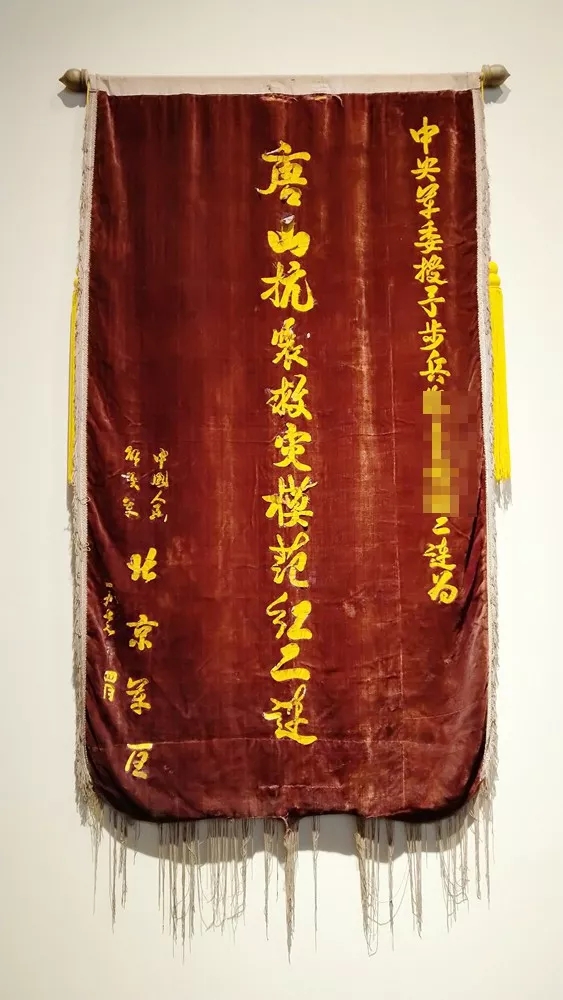 中央军委授予步兵
二连为
唐山抗震救灾模范红二连
中國人民
解放军
北京军区
一九七七
四月